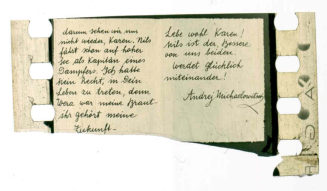 darum sehen wir uns
nicht wieder, Karen. Nils
fährt schon auf hoher
See als Kapitän eines
Dampfers. Ich hatte
kein Recht, in Dein
Leben zu treten, denn
Wera war meine Braut -
ihr gehört meine
Zukunft -
Lebe wohl Karen!
Nils ist der Bessere
von uns beiden.
Werdet Glücklich
miteinander!
Andrej